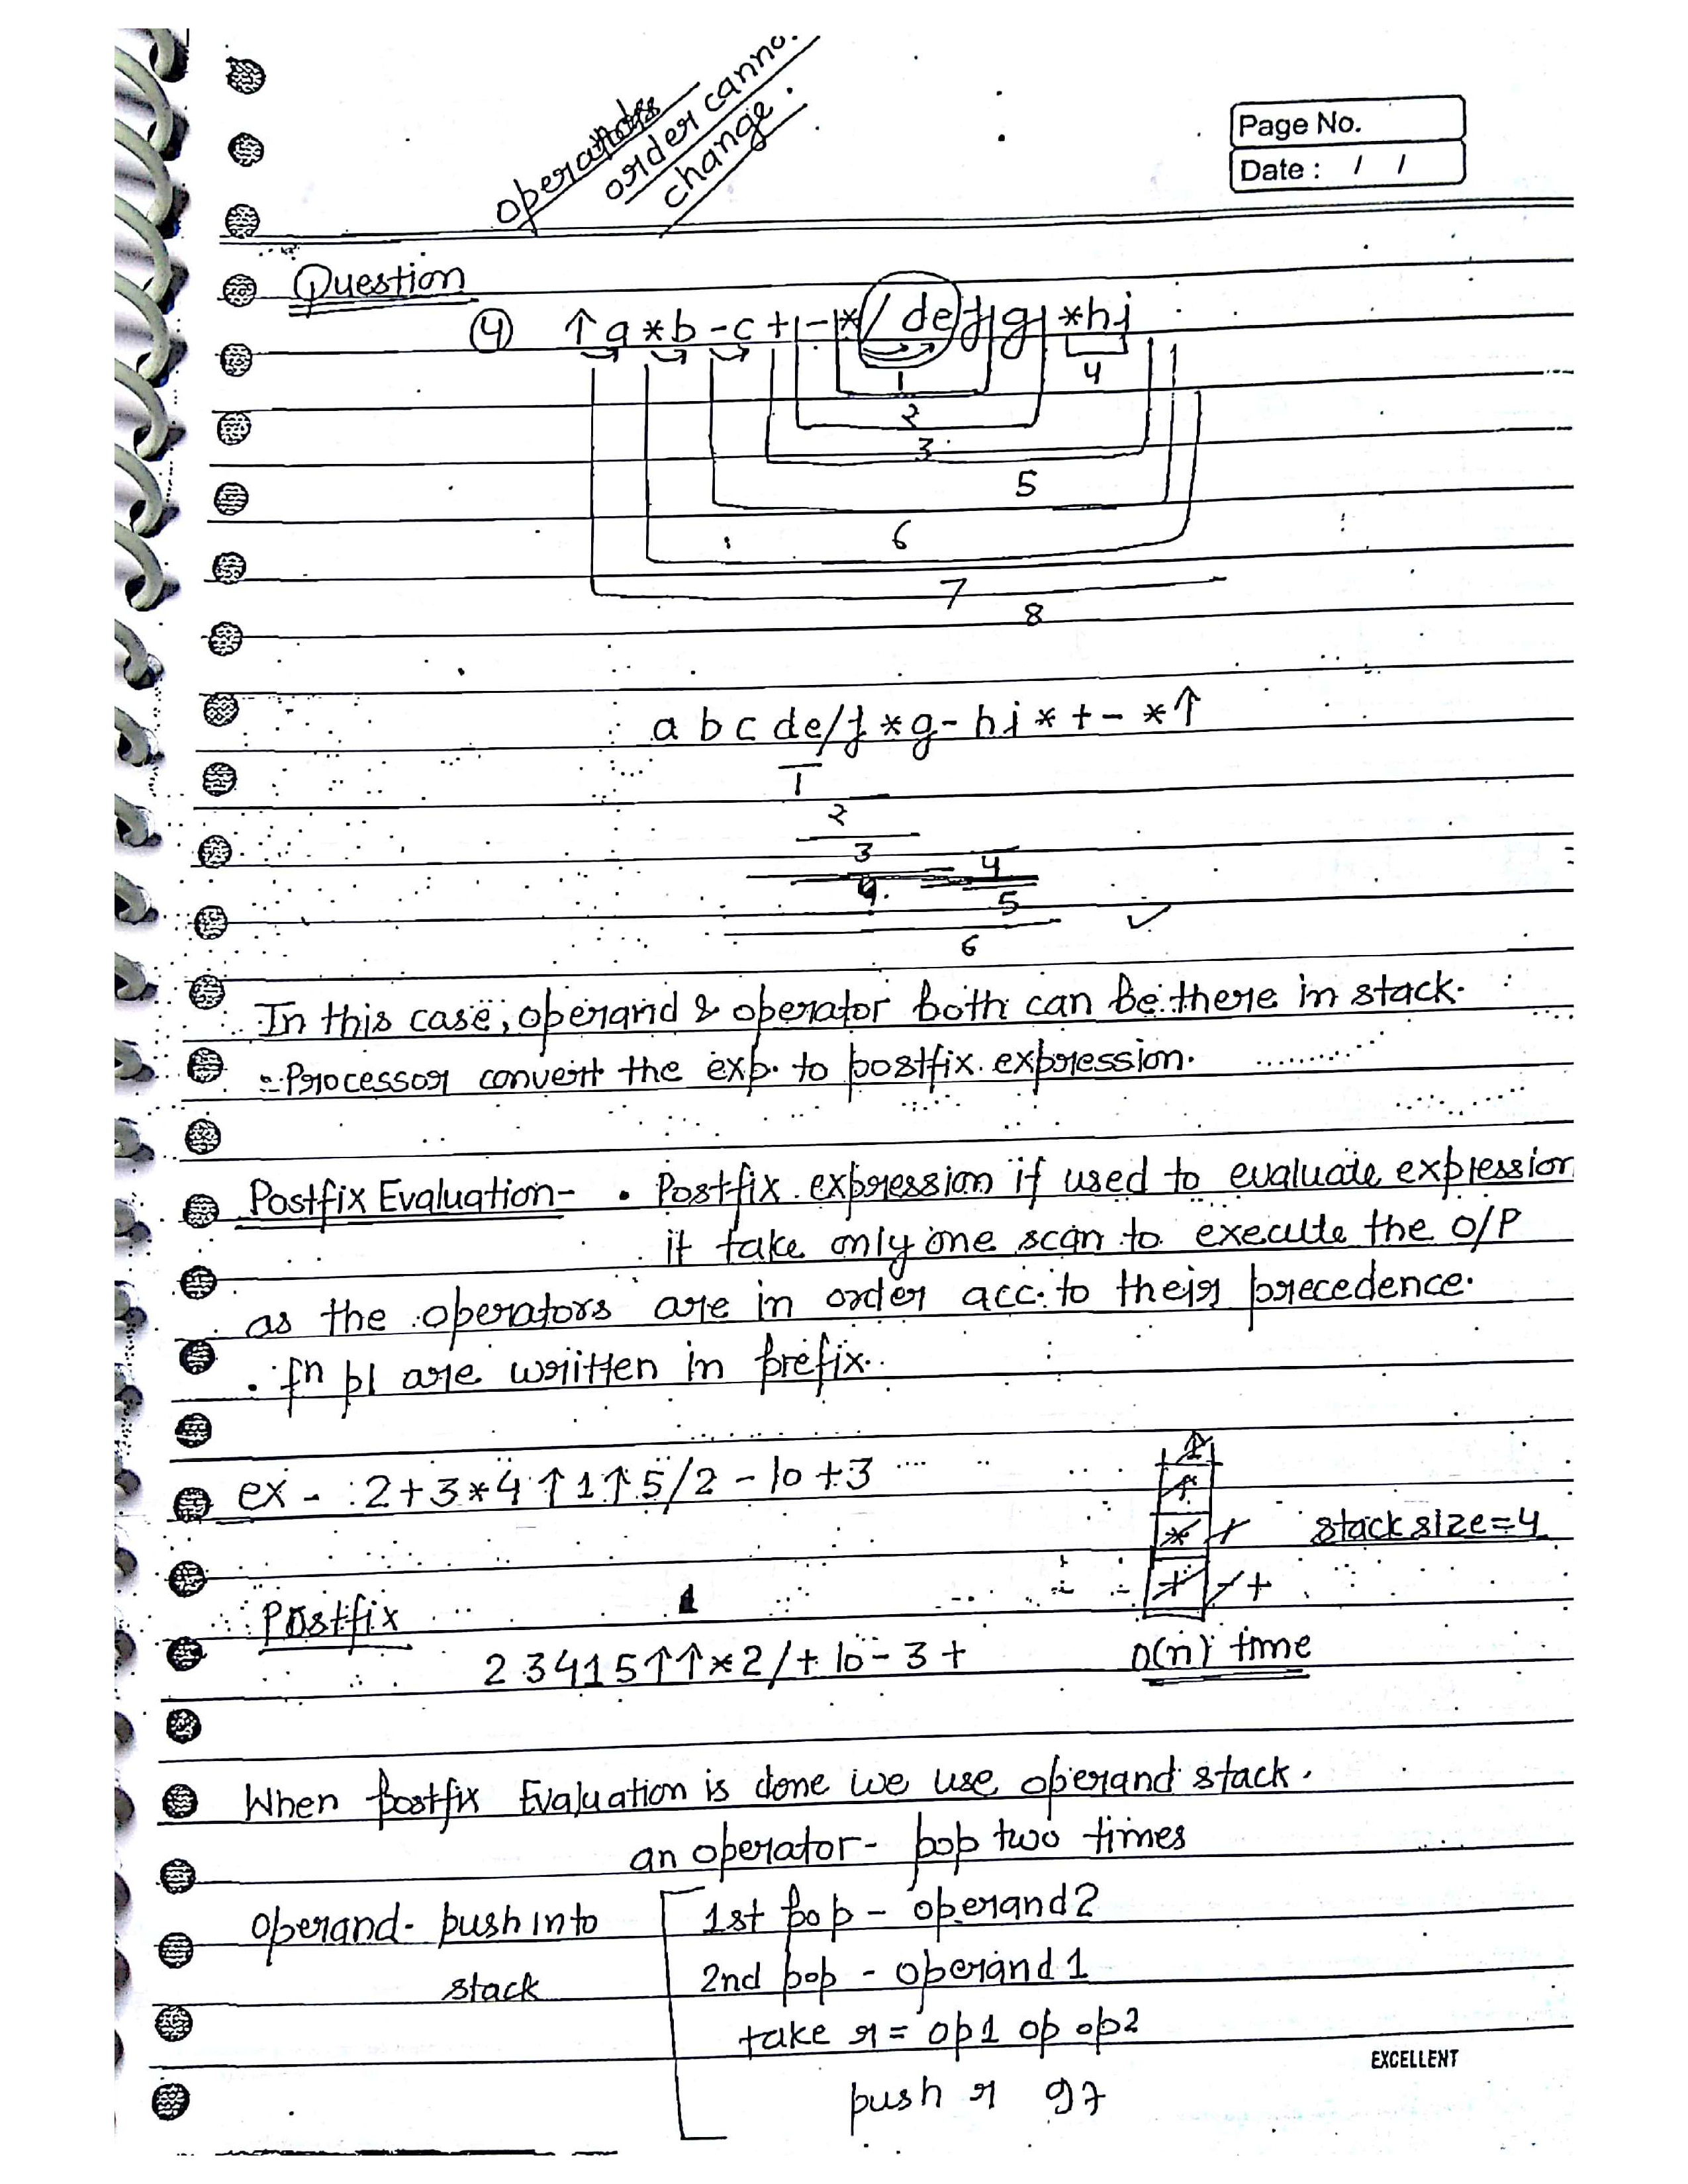 operands
order canno.
change.
Page No.
Date : / /
Question
④ ↑ a * b - c + - * / d e f g * h i
1
4
2
3
5
6
7
8
a b c d e / f * g - h i * + - * ↑
1
2
3
4
5
6
In this case, operand & operator both can be there in stack.
- Processor convert the exp. to postfix expression.
Postfix Evaluation- • Postfix expression if used to evaluate expression
it take only one scan to execute the O/P
as the operators are in order acc. to their precedence.
• fn pl are wriitten in prefix.
ex - 2+3*4↑1↑5/2-10+3
↑
↑
* /
stack size=4
+ - +
Postfix
2 3 4 1 5 ↑ ↑ * 2 / + 10 - 3 +
O(n) time
When postfix Evaluation is done we use operand stack.
an operator- pop two times
operand- push into
stack
1st pop - operand 2
2nd pop - operand 1
take r = op1 op op2
push r
EXCELLENT